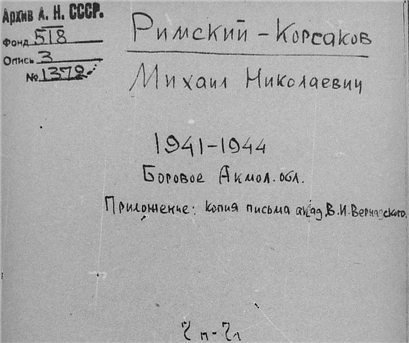 Архив А. Н. СССР.
Фонд 518
Опись 3
№ 1372
Римский-Корсаков
Михаил Николаевич
1941-1944
Боровое Акмол. обл.
Приложение: копия письма акад. В. И. Вернадского.
2 п-2л